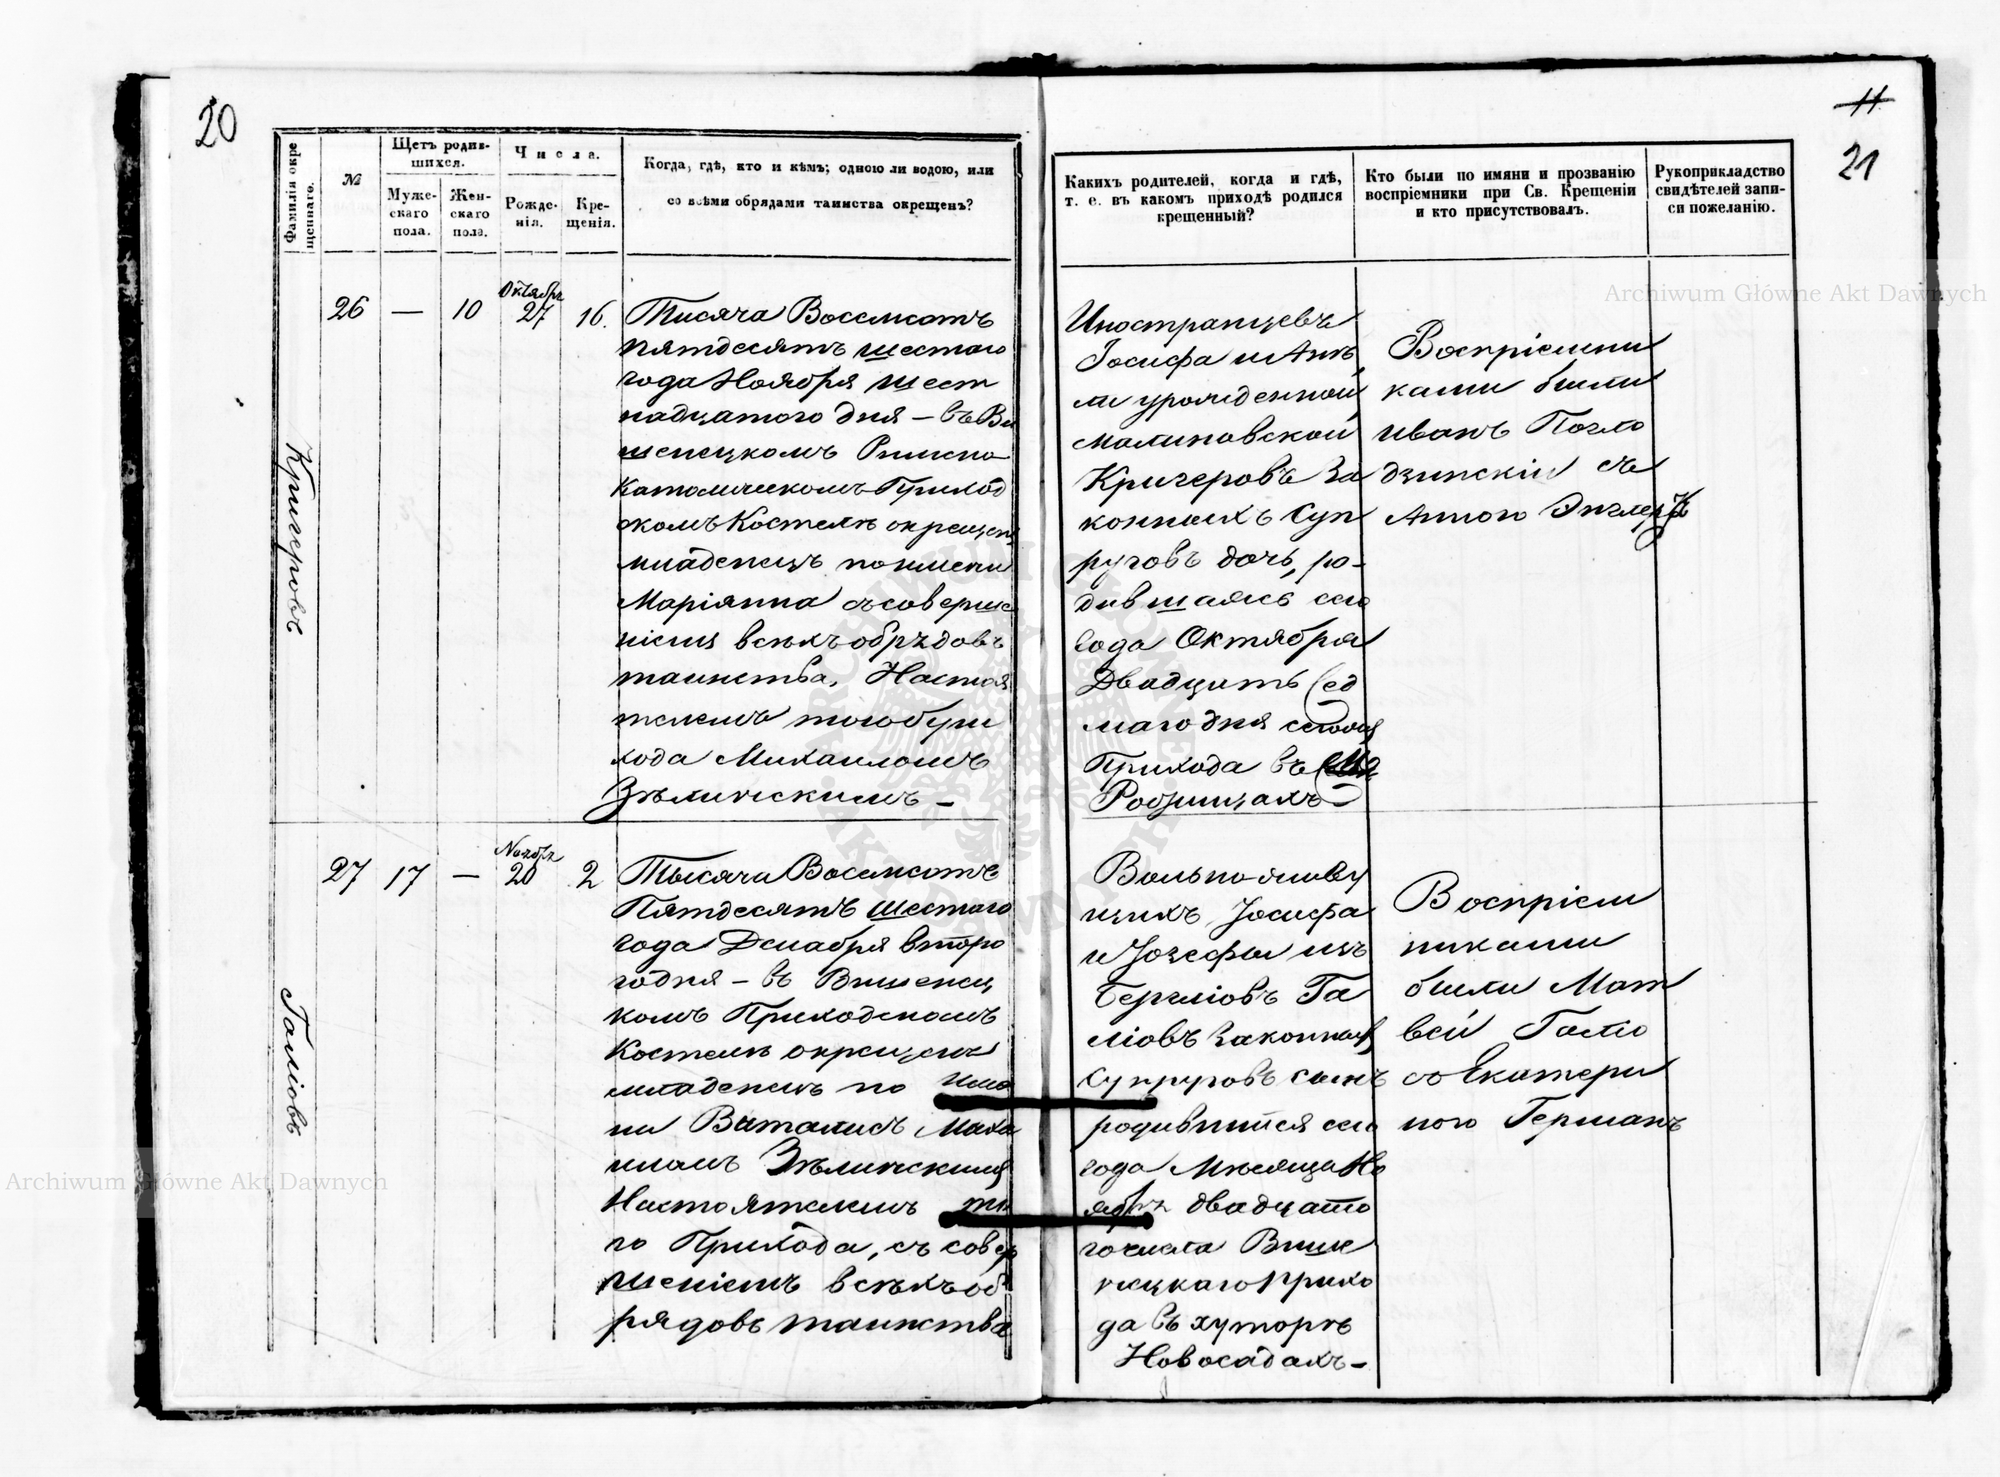 20
Фамилія окре
щеннаго.
№
Щетъ родив-
шихся.
Муже-
скаго
пола.
Жен-
скаго
пола.
Числа.
Рожде-
нія.
Кре-
щенія.
Когда, гдѣ, кто и кѣмъ; одною ли водою, или
со всѣми обрядами таинства окрещенъ?
Кригеровъ
26
—
10
Октябрь
27
16.
Тысяча Восемсотъ
пятдесятъ шестого
года Ноября шест
надцатого дня – въ Ви
шенецкомъ Римско
Католическомъ Приход
скомъ Костелѣ окрещенъ
младенецъ по имени
Маріянна съ соверше
ніемъ всѣхъ обрядовъ
таинства, Настоя
телемъ того При
хода Михаиломъ
Зѣлинскимъ –
Галіовъ
27
17
—
Ноябрь
20
2
Тысяча Восемсотъ
Пятдесятъ шестаго
года Декабря второ
го дня – въ Вишенец
комъ Приходскомъ
Костелѣ окрещенъ
младенецъ по имѣ
ни Виталисъ Миха
иломъ Зѣлинскимъ
Настоятелемъ то
го Прихода, съ совер
шеніемъ всѣхъ об
рядовъ таинства
11
21
Какихъ родителей, когда и гдѣ,
т. е. въ какомъ приходѣ родился
крещенный?
Кто были по имяни и прозванію
воспріемники при Св. Крещеніи
и кто присутствовалъ.
Рукоприкладство
свидѣтелей запи-
си пожеланію.
Иностранцевъ
Іосифа и Анѣ
ли урожденной
Малиновской
Кригеровъ За
конныхъ Суп
руговъ дочь, ро-
дившаяся сего
года Октября
Двадцать сед
маго дня сегожъ
Прихода въ
Робзищахъ –
Воспріемни
ками были
Иванъ Погло
дзинскій съ
Анною Энглертъ
Вольнолюву
щихъ Іосифа
и Іозефы изъ
Берхліовъ Га
ліовъ Законныхъ
Супруговъ сынъ
родившійся сего
года Мѣсяца Но
ябрь двадцато
го числа Више
нецкаго прихо
да въ хуторѣ
Новосадахъ –
Воспріем
никами
были Мат
вей Галіо
съ Екатери
ною Германъ
Archiwum Główne Akt Dawnych
Archiwum Główne Akt Dawnych